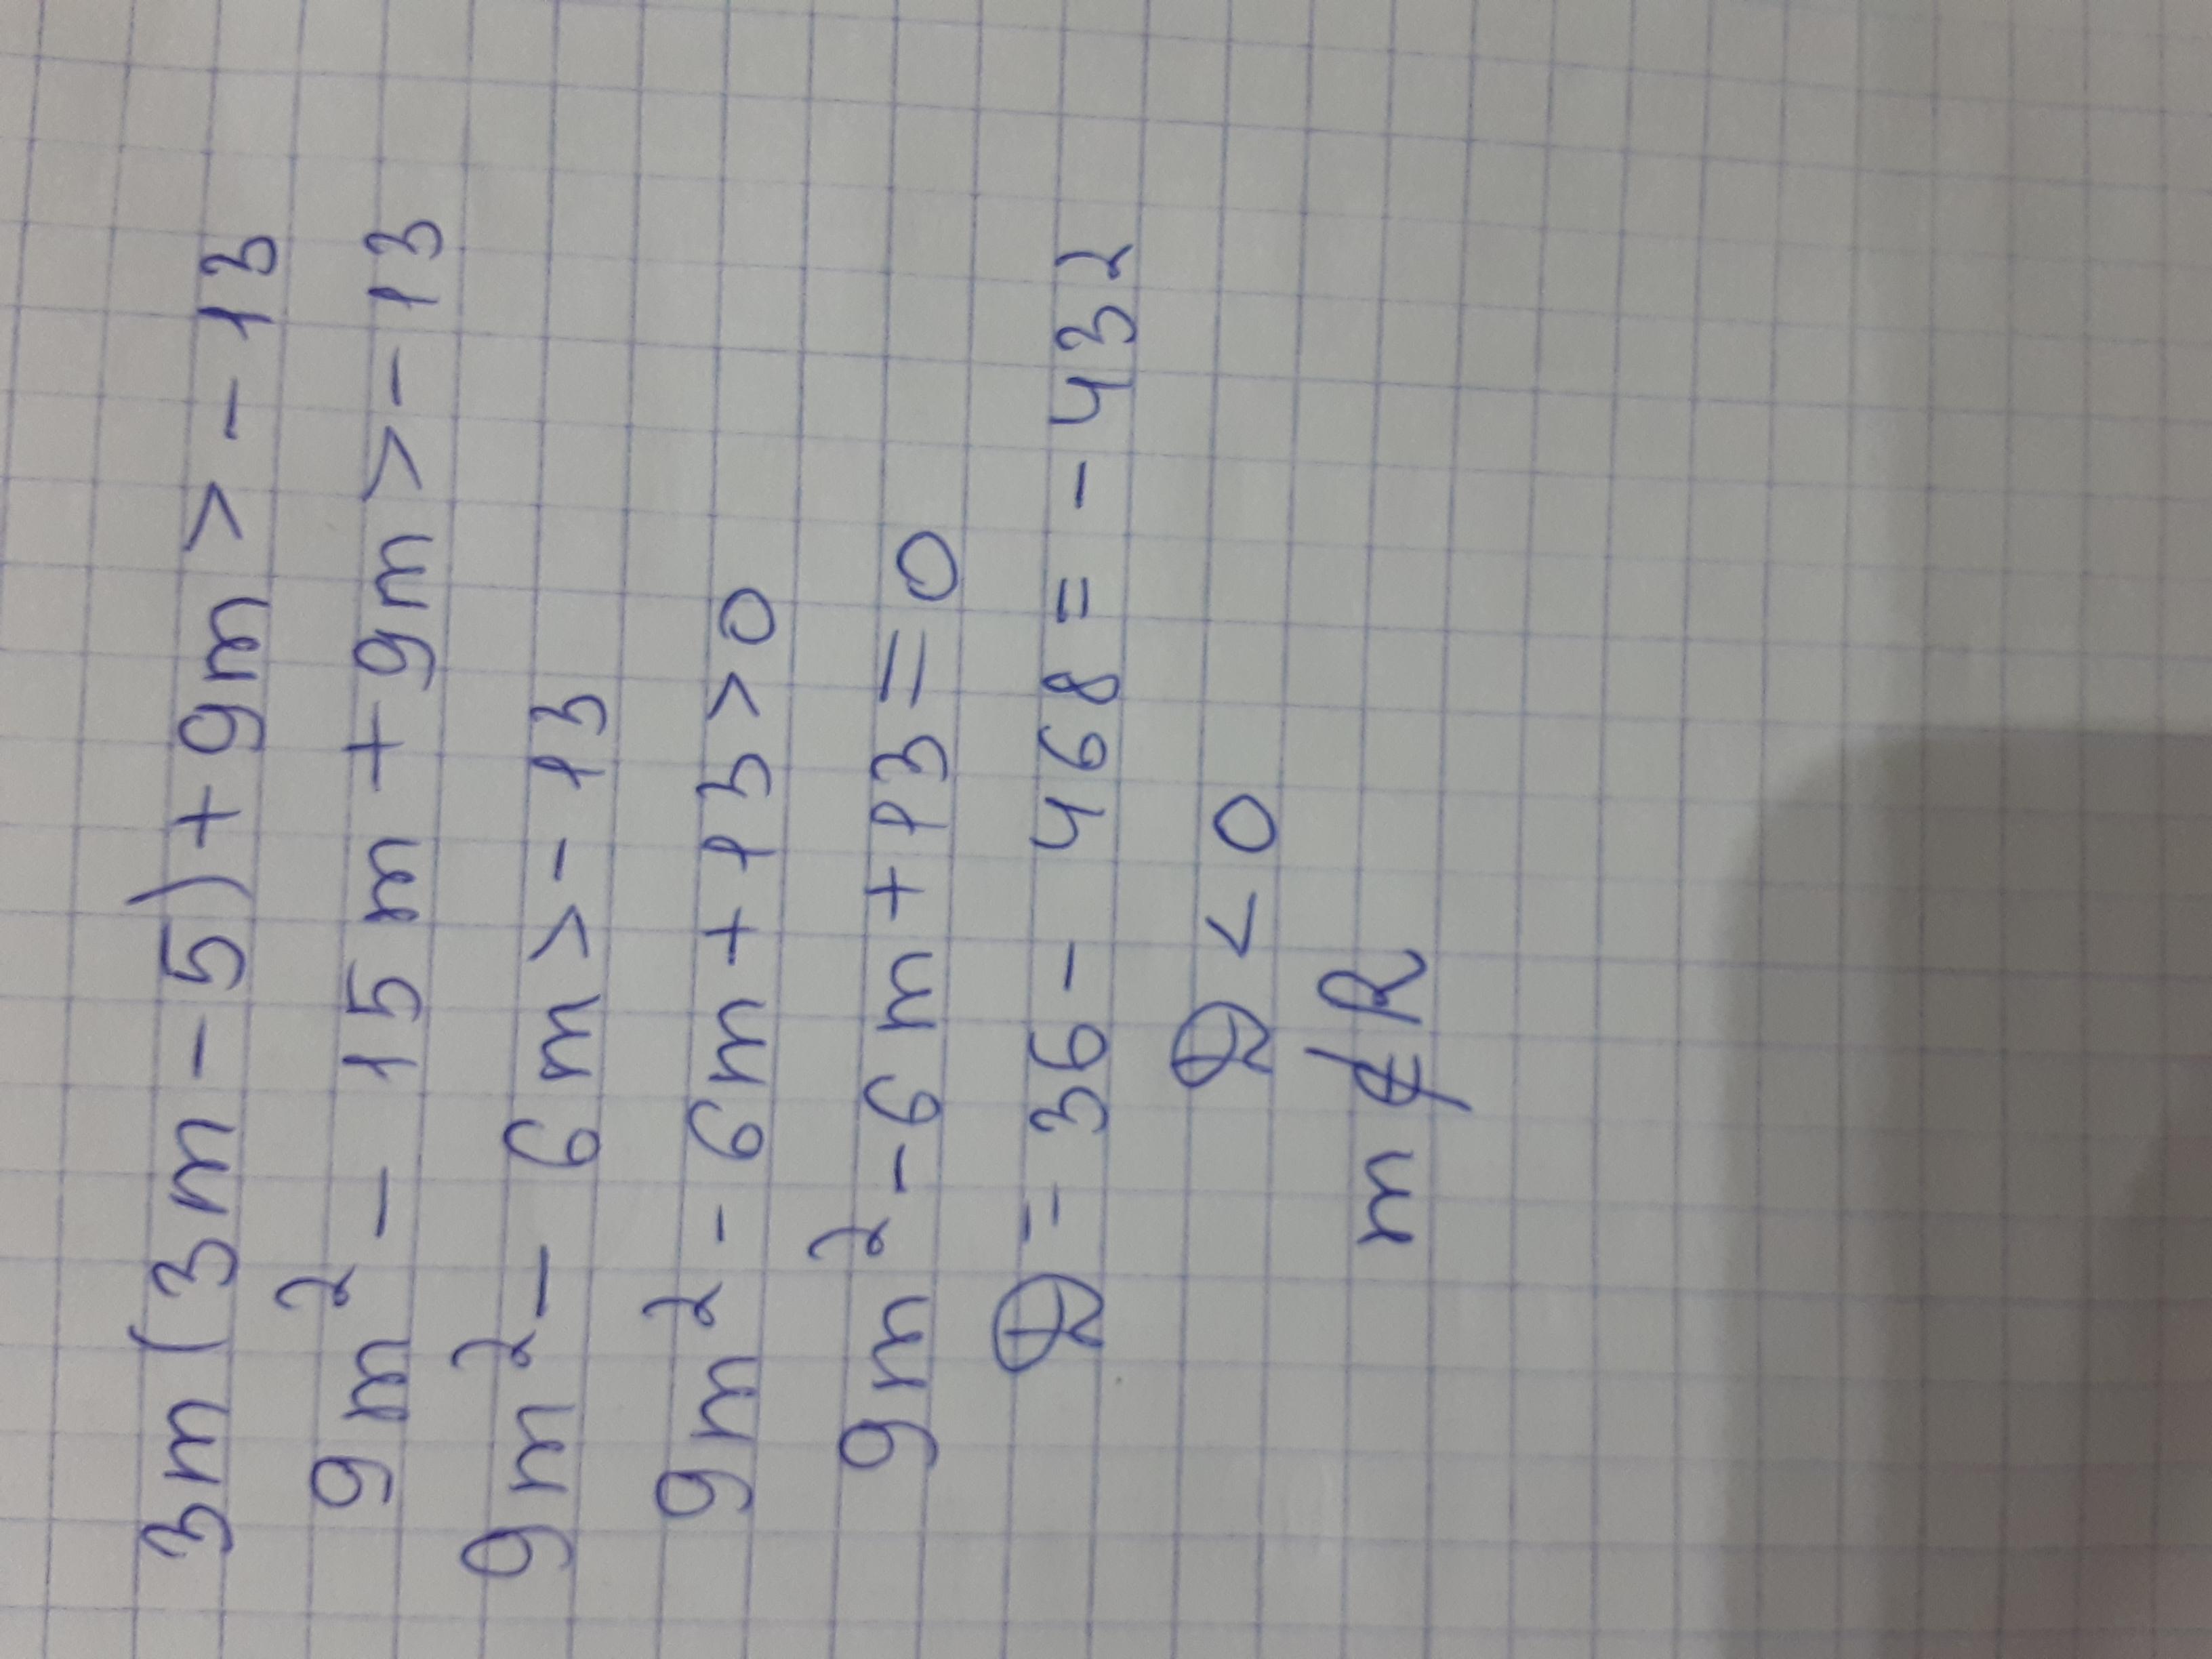 3m(3m-5)+9m>-13
9m²-15m+9m>-13
9m²-6m>-13
9m²-6m+13>0
9m²-6m+13=0
D=36-468=-432
D<0
m∉R